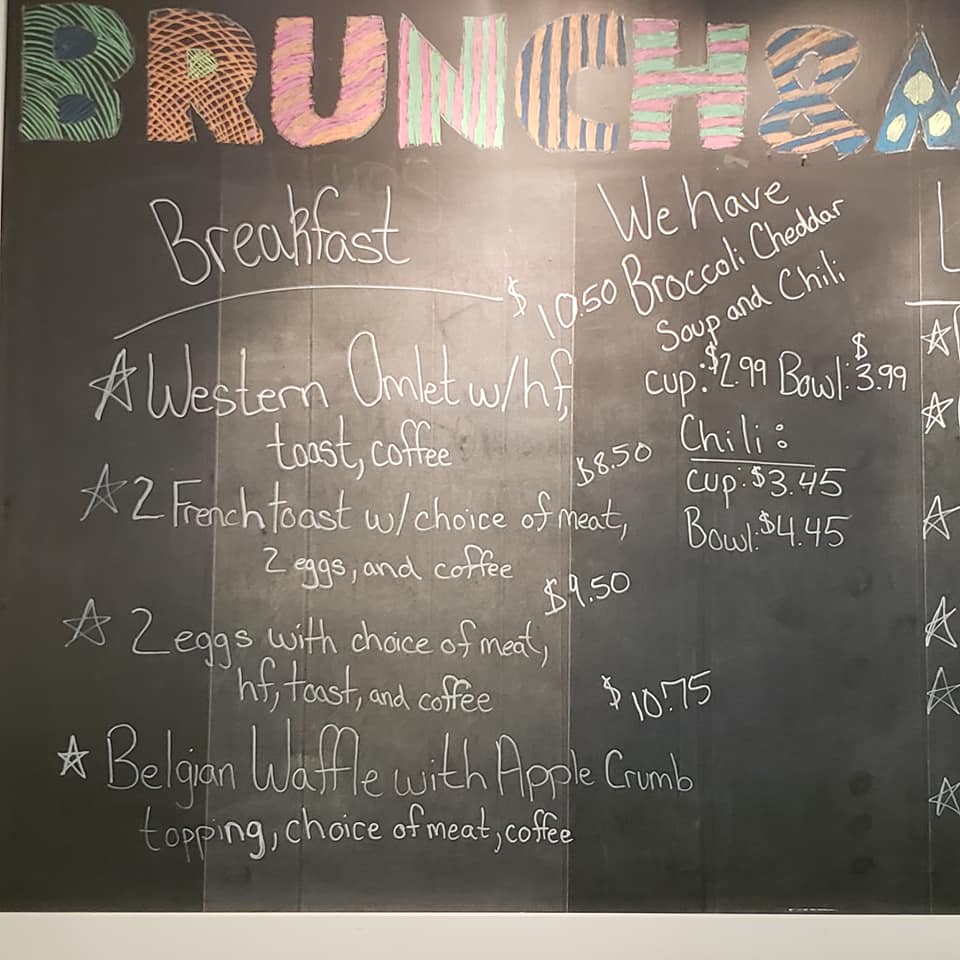 BRUNCH &
Breakfast
$10.50
☆ Western Omlet w/hf,
toast, coffee
$8.50
☆ 2 French toast w/choice of meat,
2 eggs, and coffee
$9.50
☆ 2 eggs with choice of meat,
hf, toast, and coffee
$10.75
☆ Belgian Waffle with Apple Crumb
topping, choice of meat, coffee
We have
Broccoli Cheddar
Soup and Chili
cup: $2.99 Bowl: $3.99
Chili:
cup: $3.45
Bowl: $4.45